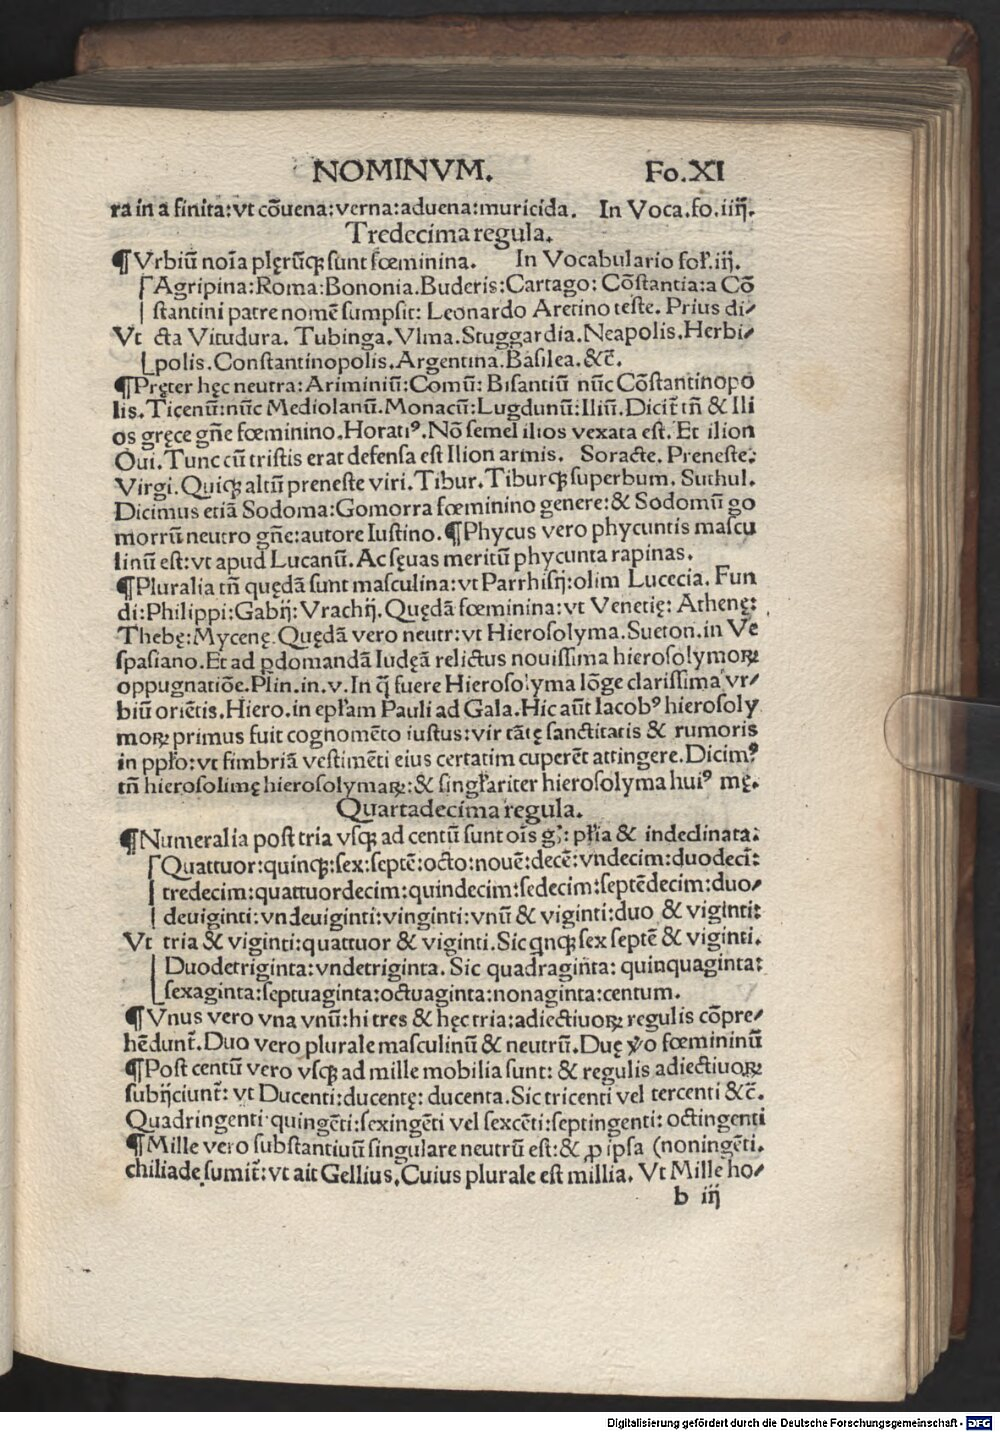 NOMINVM. Fo.XI
ra in a finita:vt cõuena:verna:aduena:muricida. In Voca.fo.iiij.
Tredecima regula.
¶Vrbiũ noĩa plęrũqꝫ sunt fœminina. In Vocabulario fol.iij.
Agripina:Roma:Bononia.Buderis:Cartago: Cõstantia:a Cõ
stantini patre nomẽ sumpsit: Leonardo Aretino teste. Prius di/
Vt cta Vitudura. Tubinga. Vlma.Stuggardia.Neapolis.Herbi/
polis.Constantinopolis.Argentina.Basilea.&c̃.
¶Pręter hęc neutra:Ariminiũ:Comũ: Bisantiũ nũc Cõstantinopo
lis.Ticenũ:nũc Mediolanũ.Monacũ:Lugdunũ:Iliũ.Dicit̃ tñ & Ili
os gręce gñe fœminino.Horatiꝰ.Nõ semel ilios vexata est. Et ilion
Oui.Tunc cũ tristis erat defensa est Ilion armis. Soracte. Preneste:
Virgi.Quiqꝫ altũ preneste viri.Tibur.Tiburqꝫ superbum. Suthul.
Dicimus etiã Sodoma:Gomorra fœminino genere:& Sodomũ go
morrũ neutro gñe:autore Iustino.¶Phycus vero phycuntis mascu
linũ est:vt apud Lucanũ. Ac sęuas meritũ phycunta rapinas.
¶Pluralia tñ quędã sunt masculina:vt Parrhisij:olim Lucecia. Fun
di:Philippi:Gabij: Vrachij.Quędã fœminina:vt Venetię: Athenę:
Thebę:Mycenę.Quędã vero neutr:vt Hierosolyma.Sueton.in Ve
spasiano.Et ad ꝑdomandã Iudęã relictus nouissima hierosolymoꝝ
oppugnatiõe.Plin.in.v.In q̃ fuere Hierosolyma lõge clarissima vr/
biũ oriẽtis.Hiero.in epłam Pauli ad Gala.Hic aũt Iacobꝰ hierosoly
moꝝ primus fuit cognomẽto iustus:vir tãtę sanctitatis & rumoris
in ppło:vt fimbriã vestimẽti eius certatim cuperẽt attingere.Dicimꝰ
tñ hierosolimę hierosolymaꝝ:& singłariter hierosolyma huiꝰ mę.
Quartadecima regula.
¶Numeralia post tria vsqꝫ ad centũ sunt oĩs g̃: płia & indeclinata:
Quattuor:quinqꝫ:sex:septẽ:octo:nouẽ:decẽ:vndecim:duodecĩ:
tredecim:quattuordecim:quindecim:sedecim:septẽdecim:duo/
deuiginti:vndeuiginti:vinginti:vnũ & viginti:duo & viginti:
Vt tria & viginti:quattuor & viginti.Sic qnqꝫ sex septẽ & viginti.
Duodetriginta:vndetriginta. Sic quadraginta: quinquaginta:
sexaginta:septuaginta:octuaginta:nonaginta:centum.
¶Vnus vero vna vnũ:hi tres & hęc tria:adiectiuoꝝ regulis cõpre/
hẽdunt̃.Duo vero plurale masculinũ & neutrũ.Duę v̊o fœmininũ
¶Post centũ vero vsqꝫ ad mille mobilia sunt: & regulis adiectiuoꝝ
subijciunt̃: vt Ducenti:ducentę: ducenta.Sic tricenti vel tercenti &c̃.
Quadringenti quingẽti:sexingẽti vel sexcẽti:septingenti: octingenti
¶Mille vero substantiuũ singulare neutrũ est:& ꝓ ipsa (noningẽti.
chiliade sumit̃:vt ait Gellius.Cuius plurale est millia. Vt Mille ho/
b iij
Digitalisierung gefördert durch die Deutsche Forschungsgemeinschaft - DFG